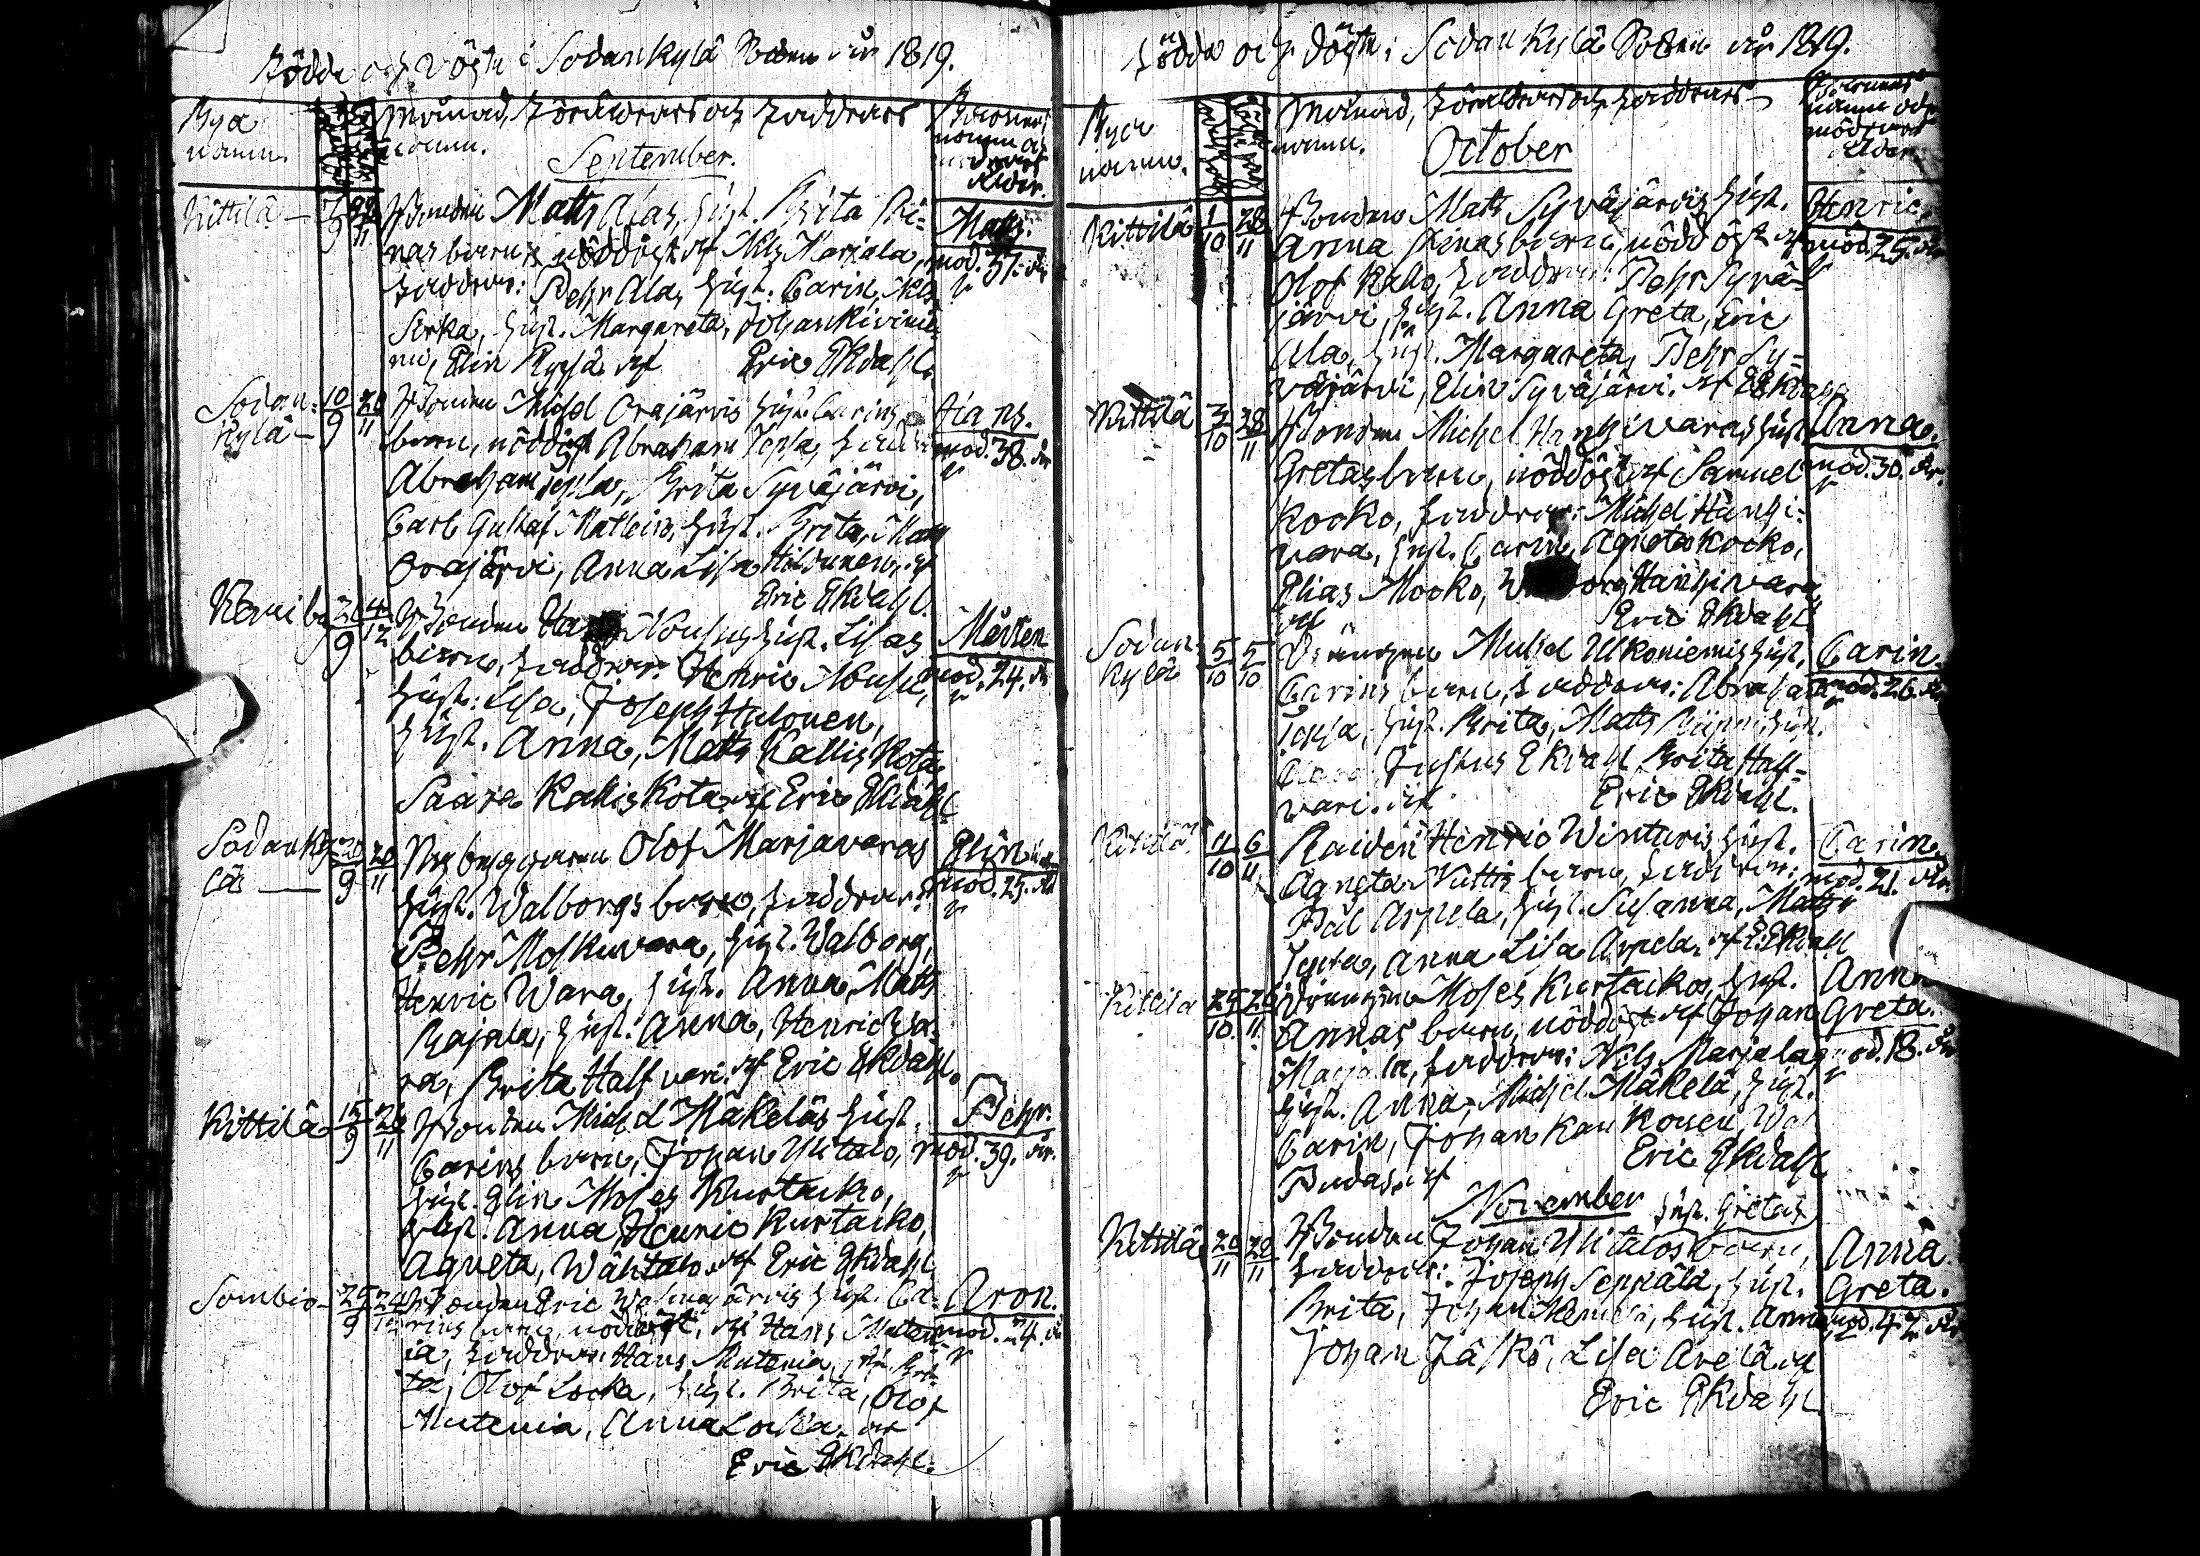 Födde och Döpte i Sodankylä Socken år 1819.
Bya
namn.
Månad, Föräldrars och Faddrars
namn.
September.
Barnens
namn och
mödrars
ålder.
Kittilä 7/9 28/11 Bonden Matts Alas, hust. Brita Pi-
nas barn, nöddöpt af Nils Marjala,
Faddrar: Pehr Ala, hust. Carin, Nils
Sirka, hust. Margareta, Johan Kivinie-
mi, Elin Kyrö af Eric Ekdahl.
Matts.
mod. 37. år
Sodan-
kylä 10/9 28/11 Bonden Michel Orajärvis hust. Carins
barn, nöddöpt Abraham Tepsa, Faddr.
Abraham Tepsa, Brita Syväjärvi,
Carl Gustaf Mattein, hust. Brita, Matts
Orajärvi, Anna Lisa Hildunen, af
Eric Ekdahl.
Hans.
mod. 38. år
Kemiby 26/9 4/12 Bonden Nousus hust. Lisas
barn, Faddrar: Henric Nousu,
hust. Lisa, Joseph Hulonen,
hust. Anna, Matts Kallis Kota
Saara Kallis Kota af Eric Ekdahl
Mårten
mod. 24. år
Sodanky-
lä 20/9 28/11 Nybyggaren Olof Marjavaras
hust. Walborgs barn, Faddrar:
Pehr Moskuvara, hust. Walborg,
Henric Wara, hust. Anna, Matts
Rajala, hust. Anna, Henric Wa-
ra, Brita Halfvari. af Eric Ekdahl.
Elin
mod. 29. år
Kittilä 15/9 28/11 Bonden Michel Mäkeläs hust.
Carins barn, Johan Uhitalo,
hust. Elin Moses Kurtacko,
hust. Anna, Henric Kurtacko,
Agneta, Wähätalo af Eric Ekdahl
Pehr.
mod. 39. år.
Sombio 29/9 Bonden Eric hust. Ca-
rins barn, nöddöpt, af Hans Muten-
ia, Faddrar: Hans Mutenia, hust. Bri-
ta, Olof Locka, hust. Brita, Olof
Mutenia, Anna Locka. af
Eric Ekdahl.
Aron.
mod. 24. år
Födde och Döpte i Sodankylä Socken år 1819.
Bya
namn.
Månad, Föräldrars och Faddrars
namn.
October
Barnens
namn och
mödrars
ålder.
Kittilä 1/10 28/11 Bonden Matts Syväjärvis hust.
Anna Pinas barn, nöddöpt af
Olof Kallo, Faddrar: Pehr Syvä-
järvi, hust. Anna Greta, Eric
Ala, hust. Margareta, Pehr Sy-
väjärvi, Elin Syväjärvi. af E Ekdahl
Henric.
mod. 25. år
Kittilä 3/10 28/11 Bonden Michel Hanhivaras hust.
Gretas barn, nöddöpt af Samuel
Kocko, Faddrar: Michel Hanhi-
vara, hust. Carin, Agneta Kocko,
Elias Kocko, Hanhivara
af Eric Ekdahl
Anna.
mod. 30. år.
Sodan-
kylä 5/10 5/10 Drängen Michel Ulkoniemis hust.
Carins barn, Faddrar: Abraham
Tepsa, hust. Brita, Matts hust.
Justus Ekdahl Brita Half-
vari. af Eric Ekdahl.
Carin.
mod. 26. år
Kittilä 11/10 6/11 Henric Winturis hust.
Agneta Nuttis barn, Faddrar:
Pål Arpela, hust. Susanna, Matts
Anna Lisa Arpela. af E: Ekdahl
Carin.
mod. 21. år.
Kittilä 25/10 28/11 Drängen Moses Kurtackos hust.
Annas barn, nöddöpt af Johan
Marjala, Faddrar: Nils Marjala,
hust. Anna, Michel Mäkelä, hust.
Carin, Johan Kaukonen,
Pudas af Eric Ekdahl
Anna
Greta.
mod. 18. år
November
hust. Gretas
Kittilä 20/11 28/11 Bonden Johan Uhitalos barn,
Faddrar: Joseph Seppälä, hust.
Brita, Johan hust. Anna,
Johan Jäskö, Lisa Arela af
Eric Ekdahl
Anna
Greta.
mod. 42 år